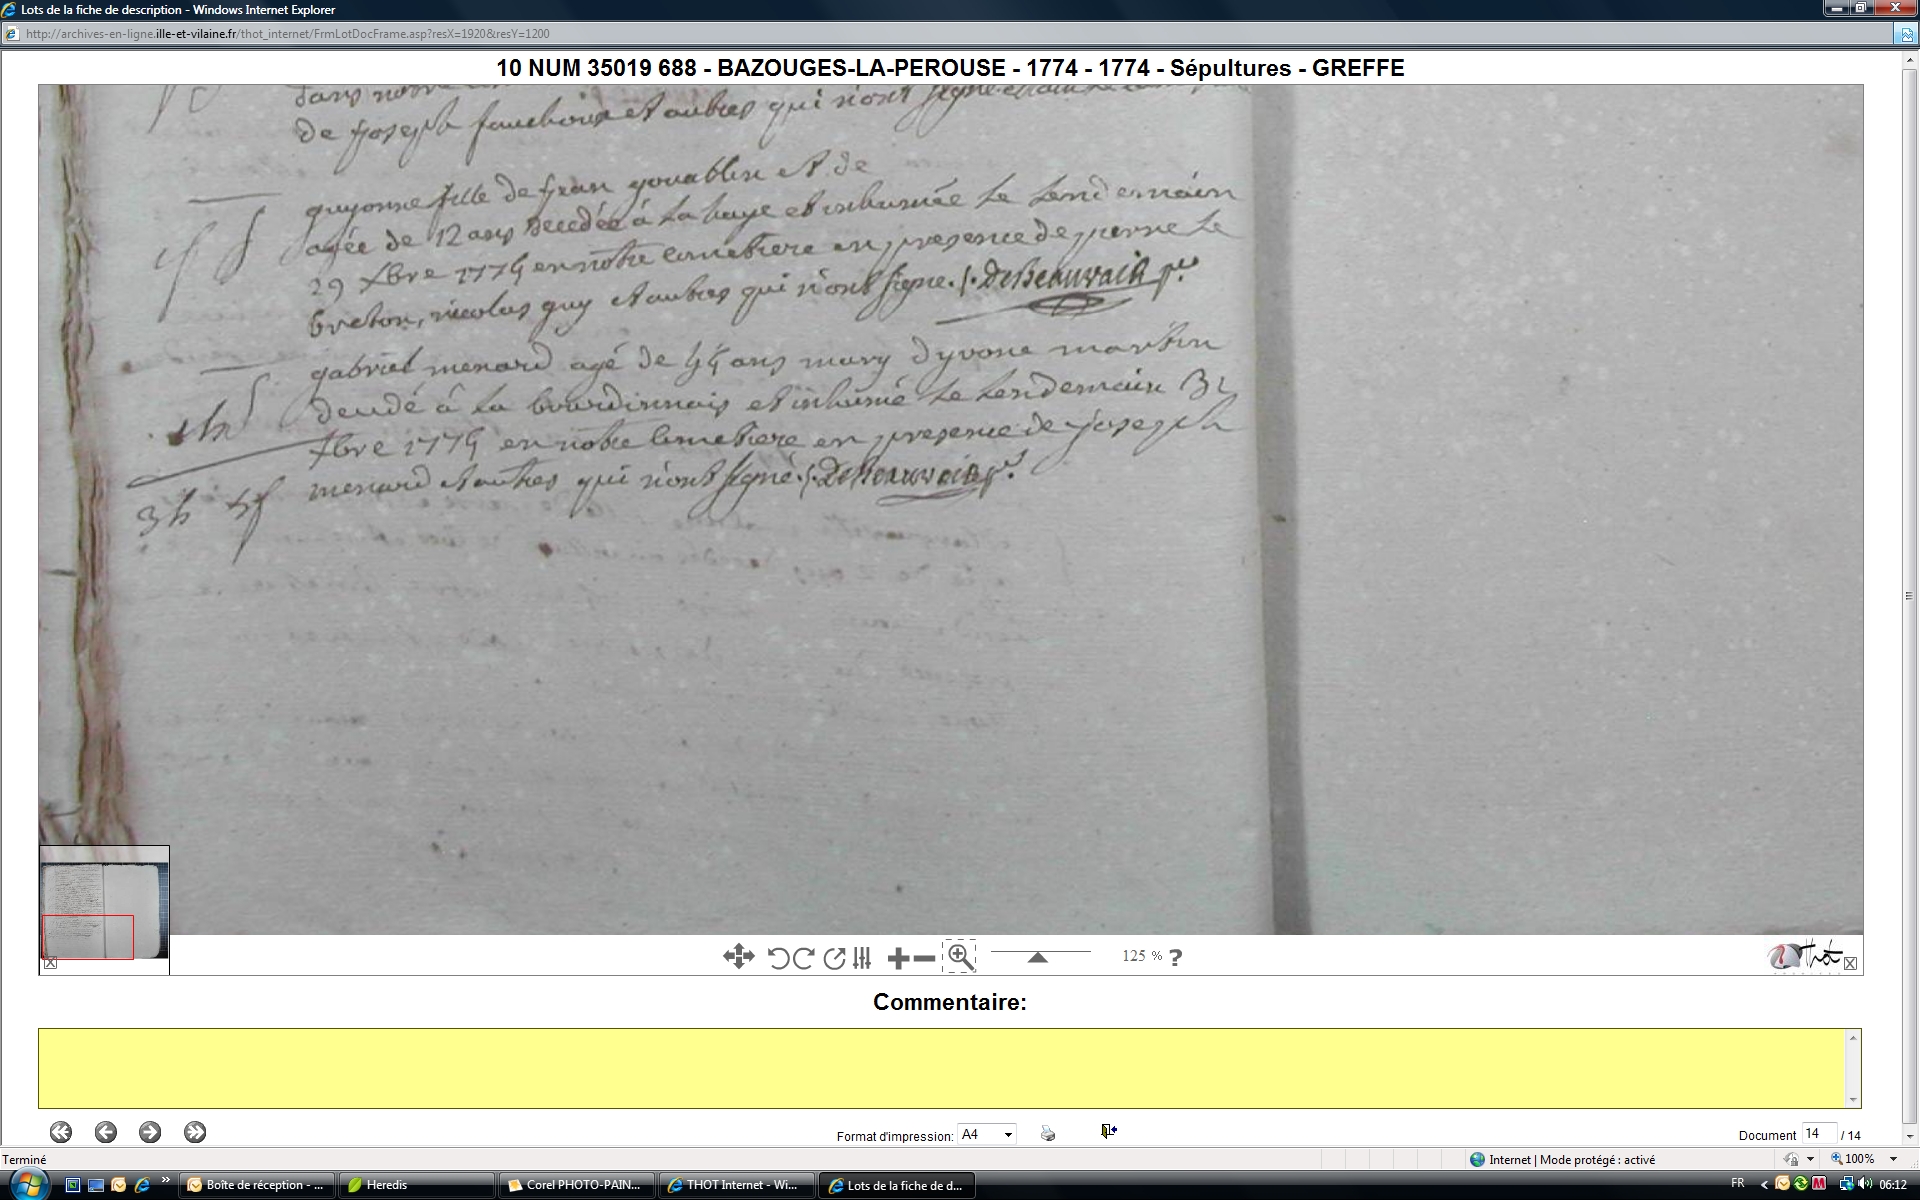 Lots de la fiche de description - Windows Internet Explorer
http://archives-en-ligne.ille-et-vilaine.fr/thot_internet/FrmLotDocFrame.asp?resX=1920&resY=1200
10 NUM 35019 688 - BAZOUGES-LA-PEROUSE - 1774 - 1774 - Sépultures - GREFFE
dans notre
de joseph et autres qui n'ont signé
guyonne fille de jean gouablin et de
agée de 12 ans decedée à la haye et inhumée le lendemain
29 xbre 1774 en notre cimetiere en presence de pierre le
breton, nicolas guy et autres qui n'ont signe. /. DeBeauvais
gabriel menard agé de 44 ans mary d'yvone martin
decedé à la bourdinnais et inhumé le lendemain 31
xbre 1774 en notre cimetiere en presence de joseph
menard et autres qui n'ont signé. /. DeBeauvais
1h
3h 5f
125 % ?
Thot
Commentaire:
Format d'impression: A4
Document 14 / 14
Terminé
Internet | Mode protégé : activé
100%
Boîte de réception - ...
Heredis
Corel PHOTO-PAIN...
THOT Internet - Wi...
Lots de la fiche de d...
FR
06:12